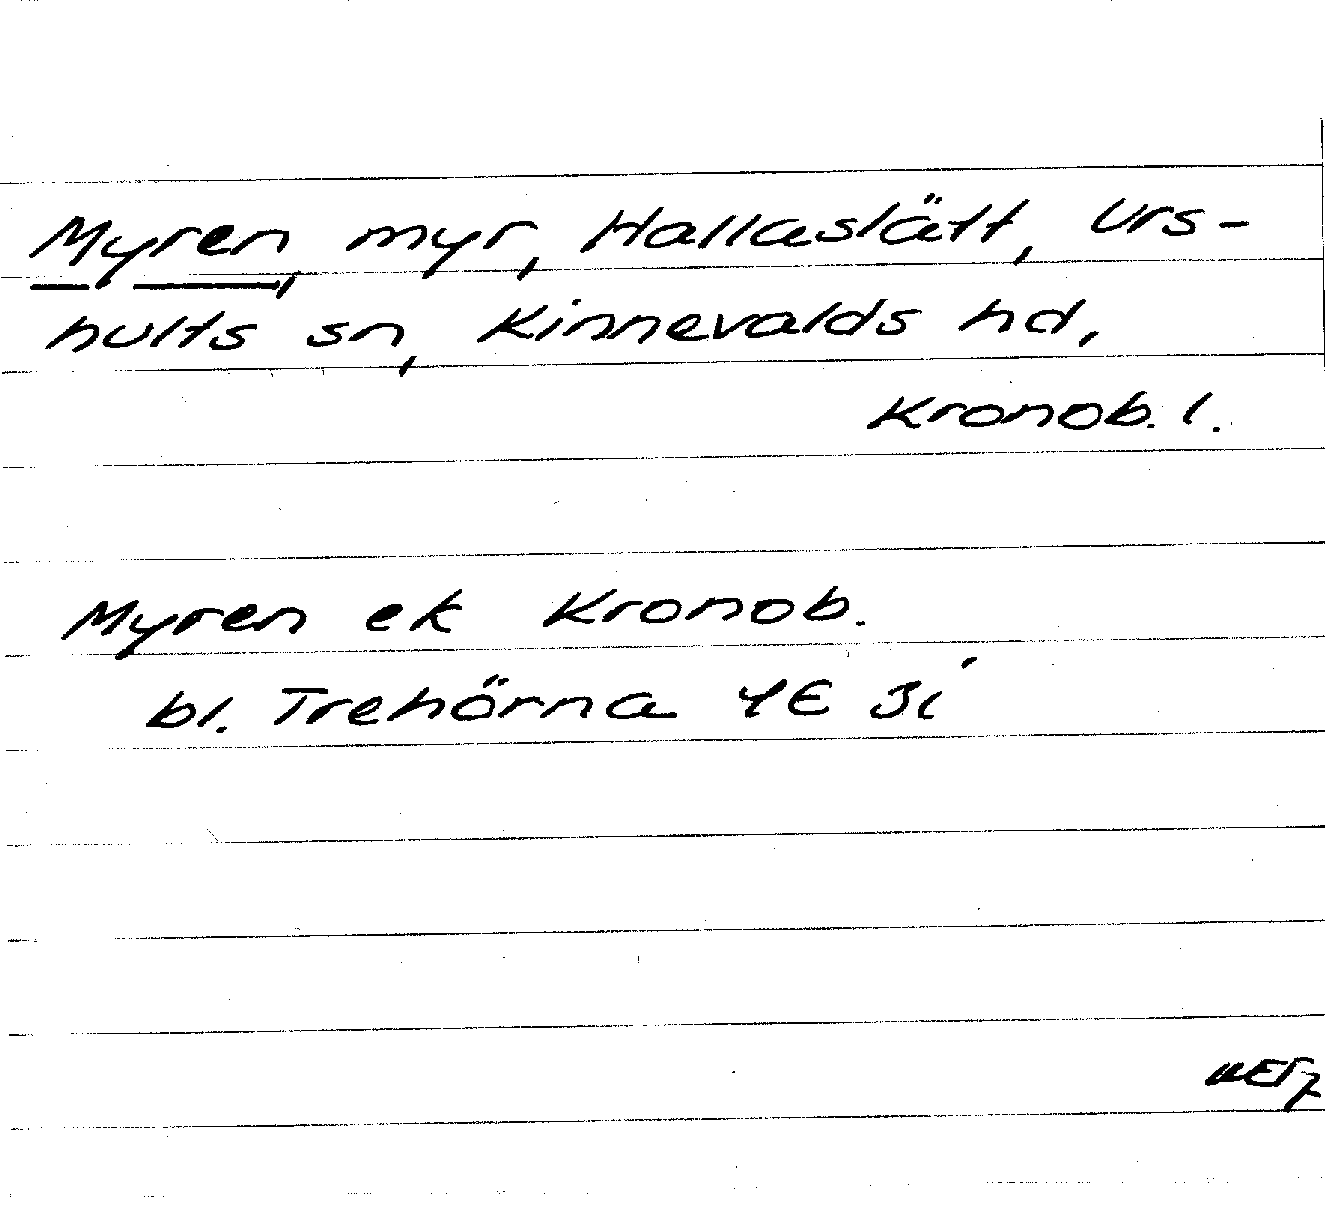 Myren, myr, Hallaslätt, Urs-
hults sn, Kinnevalds hd,
Kronob. l.
Myren ek Kronob.
bl. Trehörna 4E 3i